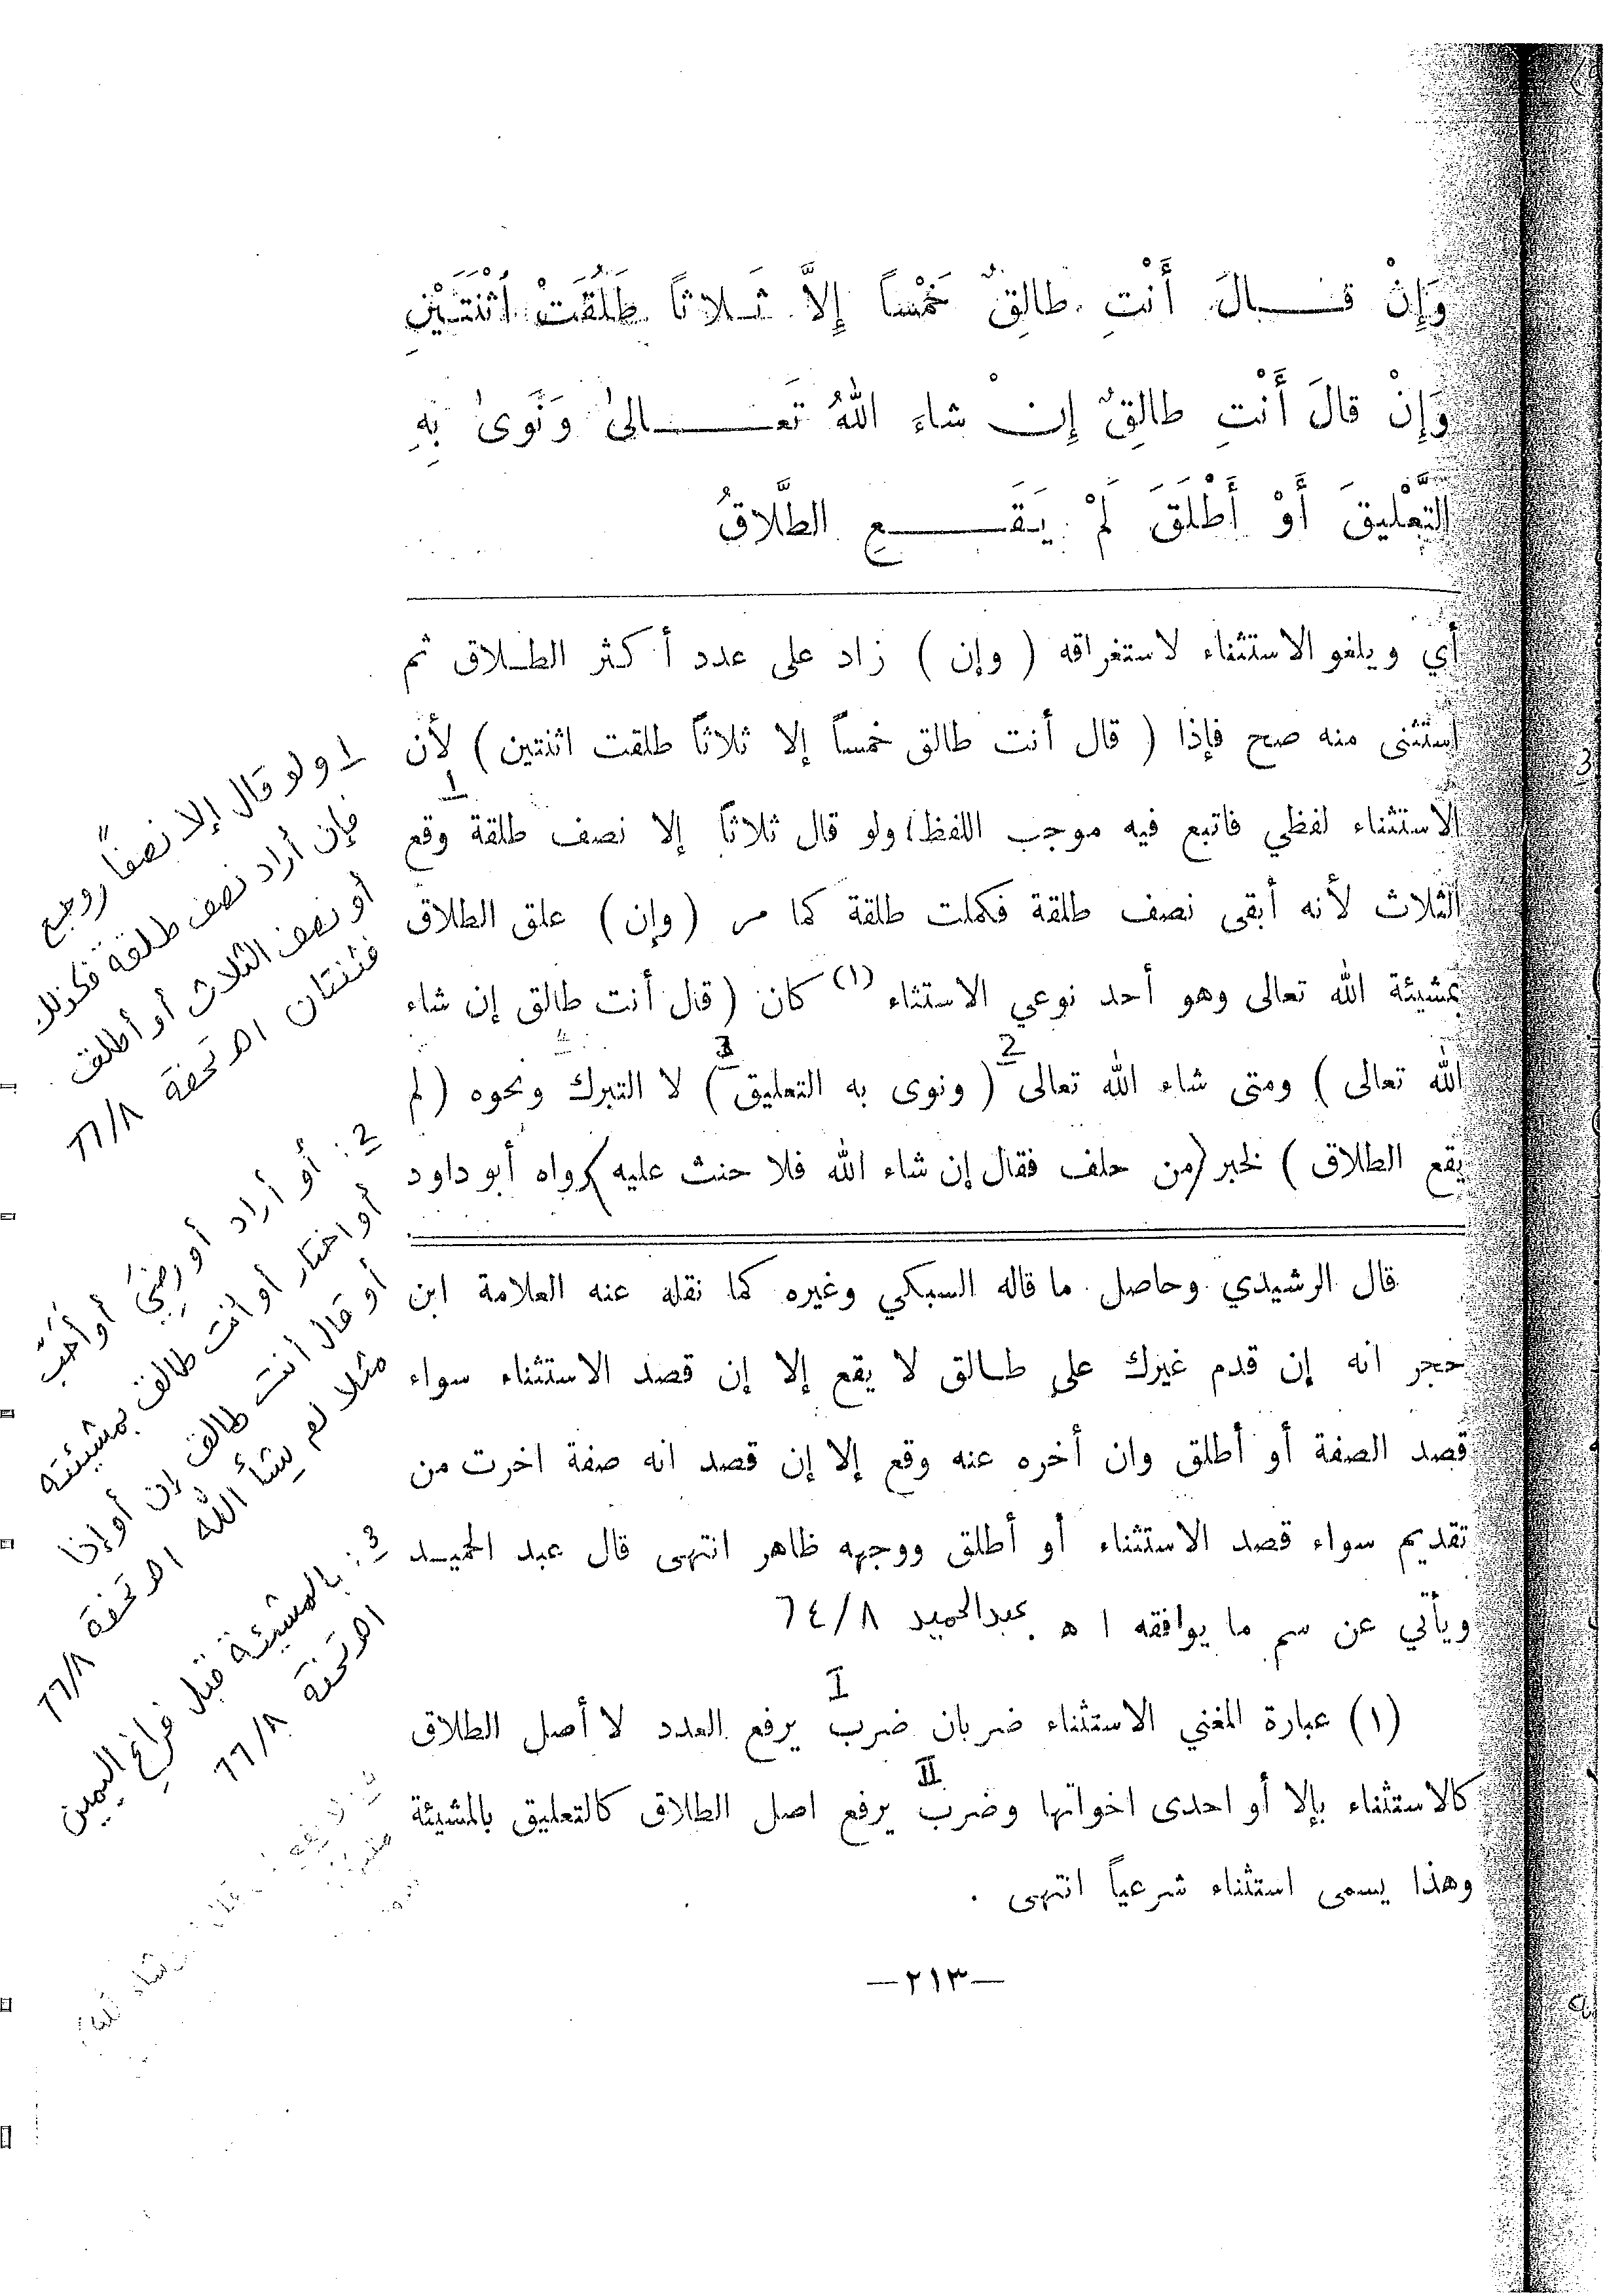 وَإِنْ قَـــالَ أَنْتِ طالِقٌ خَمْساً إِلاَّ ثَـلاثاً طَلُقَتْ اثْنَتَـيْنِ
وَإِنْ قالَ أَنْتِ طالِقٌ إِنْ شاءَ اللهُ تَعَـــالىٰ وَنَوىٰ بِهِ
التَّعْليقَ أَوْ أَطْلَقَ لَمْ يَقَـــعِ الطَّلاقُ
أي ويلغو الاستثناء لاستغراقه ( وإن ) زاد على عدد أكثر الطـلاق ثم
استثنى منه صح فإذا ( قال أنت طالق خمساً إلا ثلاثاً طلقت اثنتين ) لأن
الاستثناء لفظي فاتبع فيه موجب اللفظ 1 ولو قال ثلاثاً إلا نصف طلقة وقع
الثلاث لأنه أبقى نصف طلقة فكملت طلقة كما مر ( وإن ) علق الطلاق
بمشيئة الله تعالى وهو أحد نوعي الاستثناء (١) كان ( قال أنت طالق إن شاء
الله تعالى ) ومتى شاء الله تعالى 2 ( ونوى به التعليق 3 ) لا التبرك ونحوه ( لم
يقع الطلاق ) لخبر ( من حلف فقال إن شاء الله فلا حنث عليه ) رواه أبو داود
قال الرشيدي وحاصل ما قاله السبكي وغيره كما نقله عنه العلامة ابن
حجر انه إن قدم غيرك على طـالق لا يقع إلا إن قصد الاستثناء سواء
قصد الصفة أو أطلق وان أخره عنه وقع إلا إن قصد انه صفة اخرت من
تقديم سواء قصد الاستثناء أو أطلق ووجهه ظاهر انتهى قال عبد الحميـد
ويأتي عن سم ما يوافقه ا ه عبدالحميد ٦٤/٨
(١) عبارة المغني الاستثناء ضربان ضرب I يرفع العدد لا أصل الطلاق
كالاستثناء بإلا أو احدى اخواتها وضرب II يرفع اصل الطلاق كالتعليق بالمشيئة
وهذا يسمى استثناء شرعياً انتهى .
—٢١٣—
1 ولو قال إلا نصفاً روجع
فإن أراد نصف طلقة فكذلك
أو نصف الثلاث أو أطلق
فثنتان اه تحفة ٦٦/٨
2: أو أراد أو رضِيَ أو أحَبَّ
أو اختار أو أنت طالق بمشيئته
أو قال أنت طالق إن أو إذا
مثلا لم يشأ الله اه تحفة ٦٦/٨
3: بالمشيئة قبل فراغ اليمين
اه تحفة ٦٦/٨